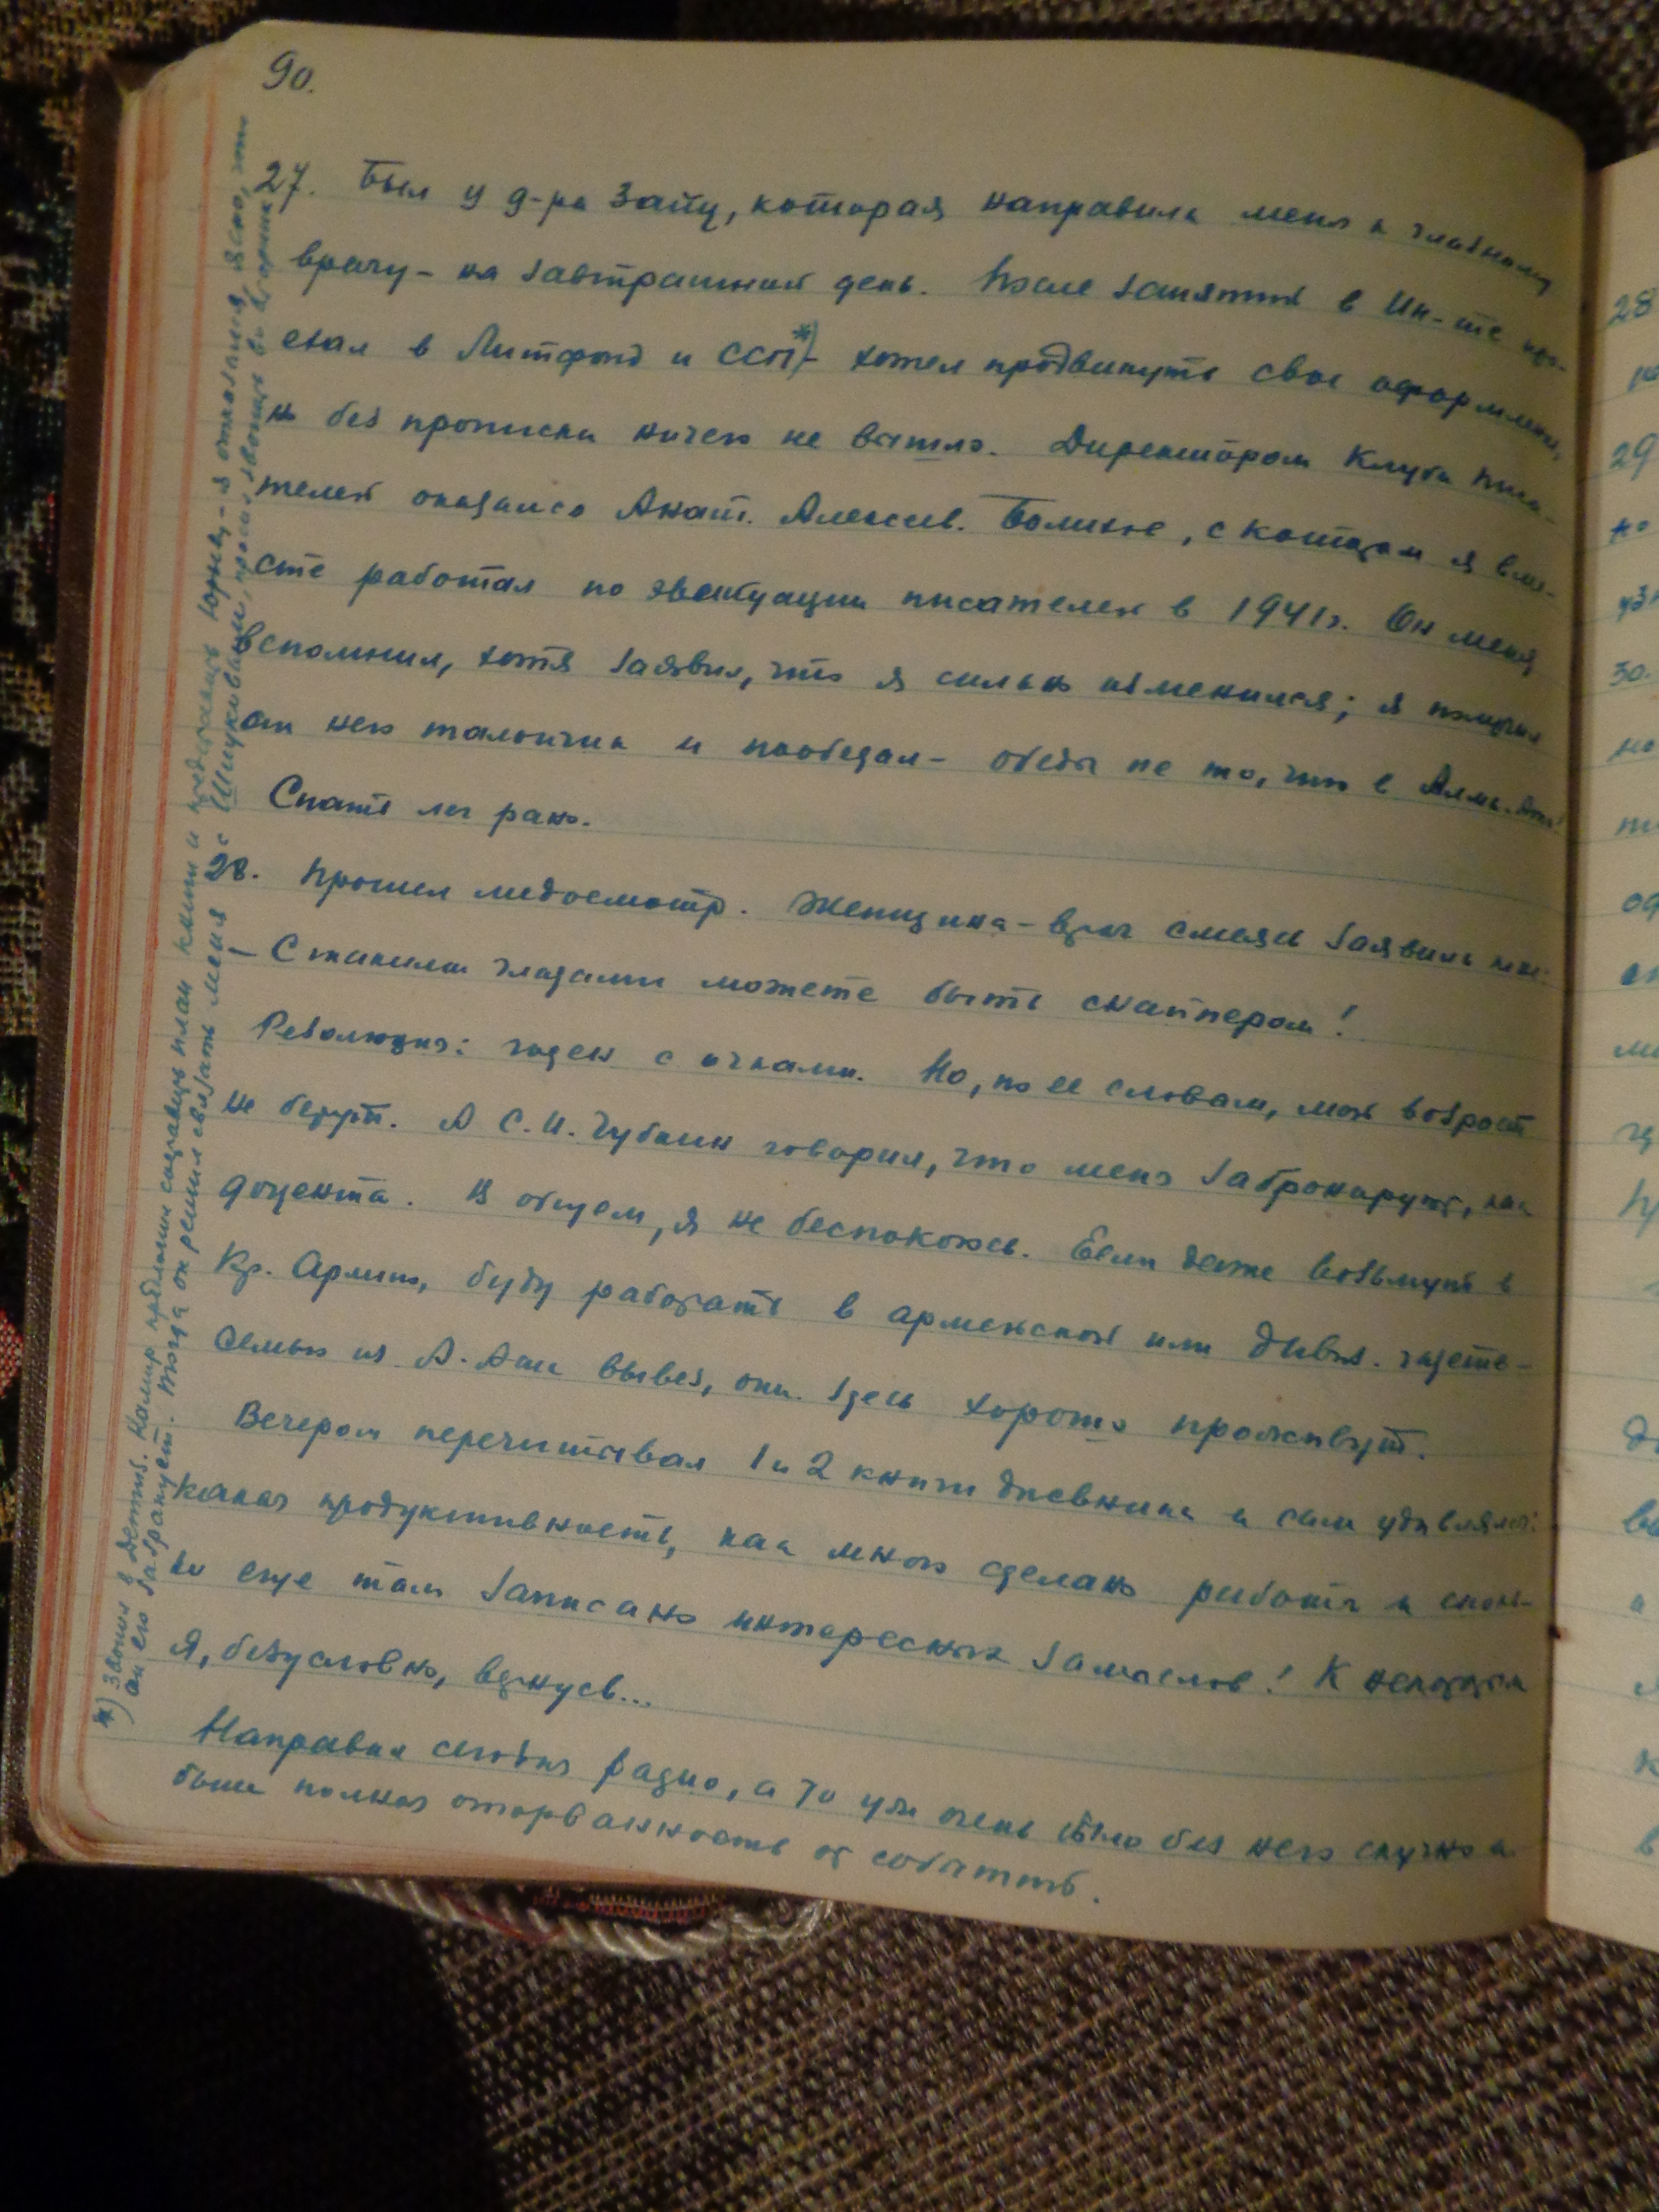 90.
27. Был у д-ра Зайц, которая направила меня к главному
врачу – на завтрашний день. После занятий в Ин-те про-
ехал в Литфонд и ССП*) – хотел продвинуть свое оформление,
но без прописки ничего не вышло. Директором Клуба писа-
телей оказался Анат. Алексеев. , с которым я вме-
сте работал по эвакуации писателей в 1941 г. Он меня
вспомнил, хотя заявил, что я сильно изменился; я получил
от него талончик и пообедал – обеды не то, что в Алма-Ата!
Спать лег рано.
28. Прошел медосмотр. Женщина-врач смеясь заявила мне:
– С такими глазами можете быть снайпером!
Резолюция: годен с очками. Но, по ее словам, мой возраст
не берут. А С.И. Губкин говорил, что меня забронируют, как
доцента. В общем, я не беспокоюсь. Если даже возьмут в
Кр. Армию, буду работать в армейской или дивиз. газете –
семью из А. Аты вывез, они здесь хорошо проживут.
Вечером перечитывал 1 и 2 книги дневника и сам удивлялся:
какая продуктивность, как много сделано работы и сколь-
ко еще там записано интересных замыслов! К некоторым
я, безусловно, вернусь...
Направил сегодня радио, а то уж очень было без него скучно и
была полная оторванность от событий.
*) Звонил в Детгиз. Камир предложил создавать план книги и предложить Юрьеву – я отказался, ясно, что
он его забракует. Тогда он решил связать меня с Шицковым, просил звонить во вторник
28
29
30.